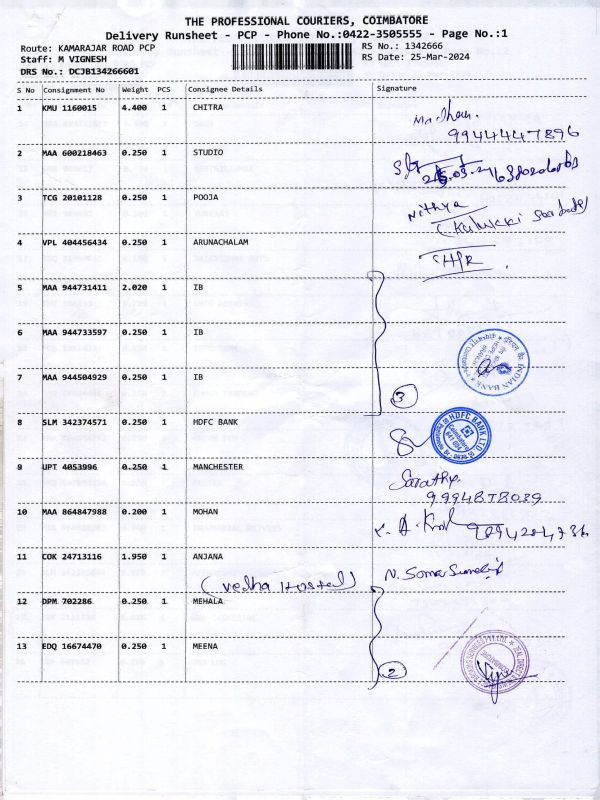 THE PROFESSIONAL COURIERS, COIMBATORE
Delivery Runsheet - PCP - Phone No.:0422-3505555 - Page No.:1
Route: KAMARAJAR ROAD PCP RS No.: 1342666
Staff: M VIGNESH RS Date: 25-Mar-2024
DRS No.: DCJB134266601
S No Consignment No Weight PCS Consignee Details Signature
1 KMU 1160015 4.400 1 CHITRA
9944447896
2 MAA 600218463 0.250 1 STUDIO
3 TCG 20101128 0.250 1 POOJA Nithya
4 VPL 404456434 0.250 1 ARUNACHALAM
5 MAA 944731411 2.020 1 IB
6 MAA 944733597 0.250 1 IB
INDIAN BANK
7 MAA 944504929 0.250 1 IB
3
8 SLM 342374571 0.250 1 HDFC BANK HDFC BANK LTD
Coimbatore
9 UPT 4053996 0.250 1 MANCHESTER Sarathy
9994878039
10 MAA 864847988 0.200 1 MOHAN
11 COK 24713116 1.950 1 ANJANA
(Vedha Hostel)
12 DPM 702286 0.250 1 MEHALA
13 EDQ 16674470 0.250 1 MEENA
2